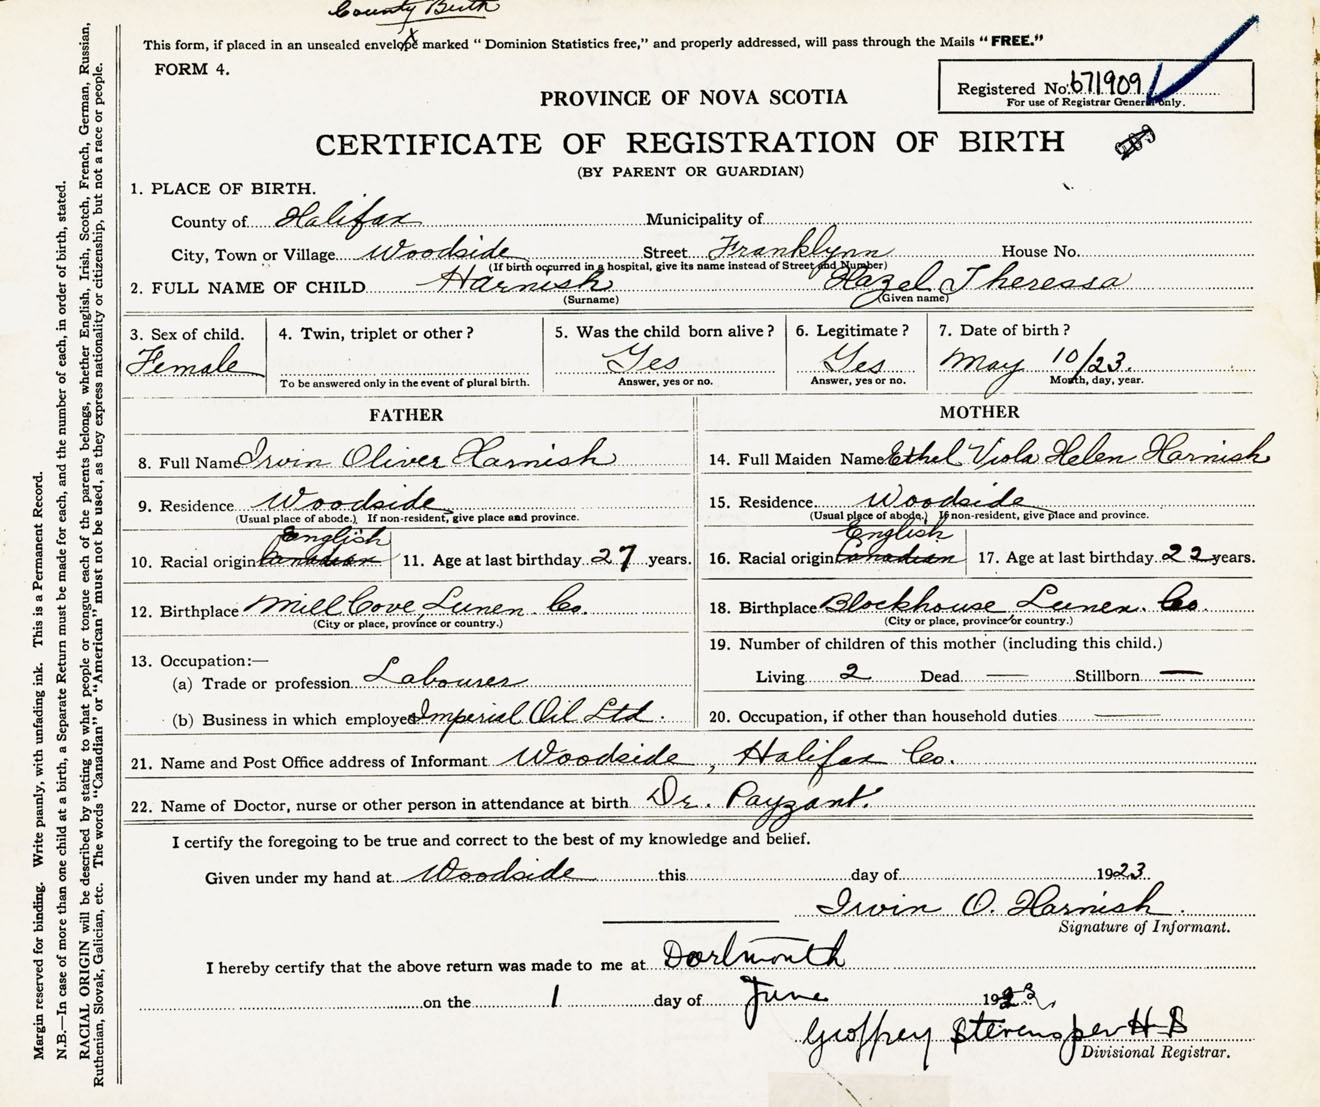 County Birth
This form, if placed in an unsealed envelope marked " Dominion Statistics free," and properly addressed, will pass through the Mails " FREE."
FORM 4.
Registered No. 671909
For use of Registrar General only.
PROVINCE OF NOVA SCOTIA
CERTIFICATE OF REGISTRATION OF BIRTH
(BY PARENT OR GUARDIAN)
1. PLACE OF BIRTH.
County of Halifax Municipality of
City, Town or Village Woodside Street Franklynn House No.
(If birth occurred in a hospital, give its name instead of Street and Number)
2. FULL NAME OF CHILD Harnish Hazel Theressa
(Surname) (Given name)
3. Sex of child. 4. Twin, triplet or other ? 5. Was the child born alive ? 6. Legitimate ? 7. Date of birth ?
Female Yes Yes May 10/23.
To be answered only in the event of plural birth. Answer, yes or no. Answer, yes or no. Month, day, year.
FATHER MOTHER
8. Full Name Irvin Oliver Harnish 14. Full Maiden Name Ethel Viola Helen Harnish
9. Residence Woodside 15. Residence Woodside
(Usual place of abode.) If non-resident, give place and province. (Usual place of abode.) If non-resident, give place and province.
English English
10. Racial origin Canadian 11. Age at last birthday 27 years. 16. Racial origin Canadian 17. Age at last birthday 22 years.
12. Birthplace Mill Cove Lunen. Co. 18. Birthplace Blockhouse Lunen. Co.
(City or place, province or country.) (City or place, province or country.)
13. Occupation:— 19. Number of children of this mother (including this child.)
(a) Trade or profession Labourer Living 2 Dead — Stillborn —
(b) Business in which employed Imperial Oil Ltd. 20. Occupation, if other than household duties —
21. Name and Post Office address of Informant Woodside, Halifax Co.
22. Name of Doctor, nurse or other person in attendance at birth Dr. Payzant.
I certify the foregoing to be true and correct to the best of my knowledge and belief.
Given under my hand at Woodside this day of 1923
Irvin O. Harnish.
Signature of Informant.
I hereby certify that the above return was made to me at Dartmouth
on the 1 day of June 1923
Geoffrey Stevens per H-S
Divisional Registrar.
Margin reserved for binding. Write plainly, with unfading ink. This is a Permanent Record.
N.B.—In case of more than one child at a birth, a Separate Return must be made for each, and the number of each, in order of birth, stated.
RACIAL ORIGIN will be described by stating to what people or tongue each of the parents belongs, whether English, Irish, Scotch, French, German, Russian,
Ruthenian, Slovak, Galician, etc. The words "Canadian" or "American" must not be used, as they express nationality or citizenship, but not a race or people.